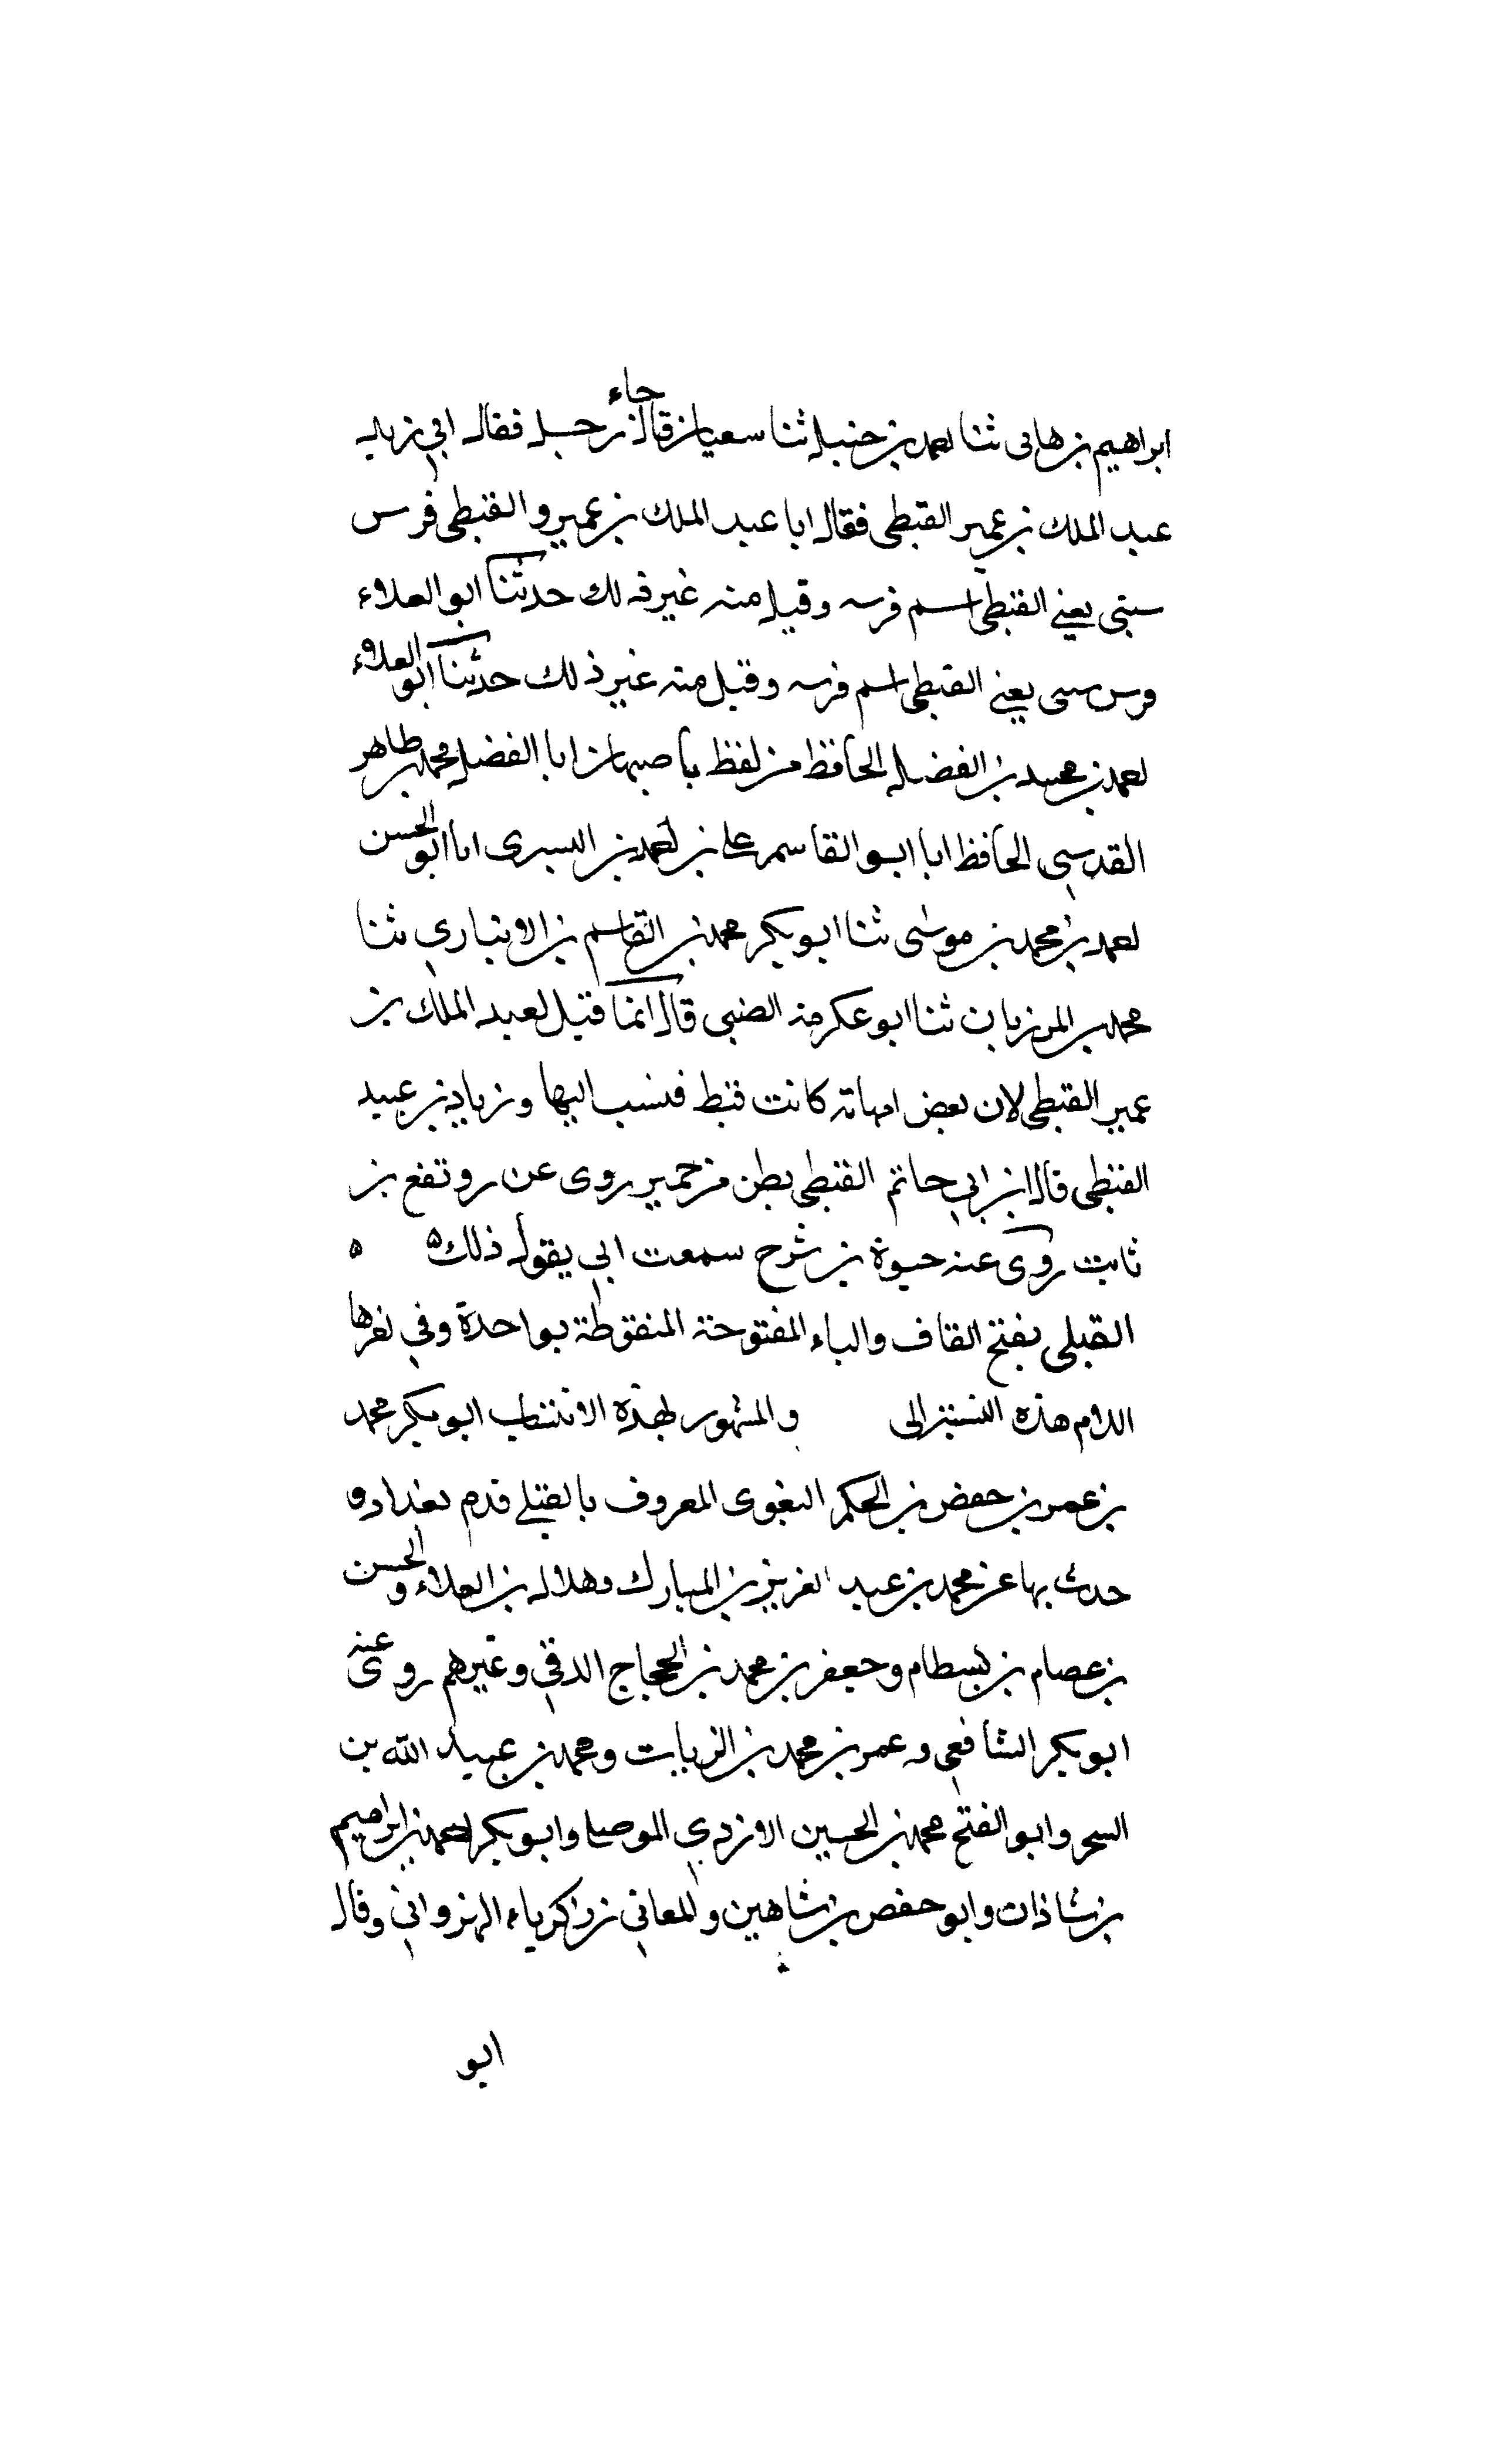 ابراهيم بن هانى ثنا احمد بن حنبل ثنا سعيان قال جاء رجل فقال اني نريد
عبد الملك بن عمير القبطى فقال انا عبد الملك بن عمير و القبطى فرس
سبتى يعني القبطى اسم فرسه وقيل منه غير ذلك حدثنا ابو العلاء
فرس سبى يعني القبطى اسم فرسه وقيل منه غير ذلك حدثنا ابو العلاء
احمد بن محمد بن الفضل الحافظ من لفظه باصبهان انا ابا الفضل محمد بن طاهر
القدسي الحافظ انا ابو القاسم على بن احمد بن البسرى انا ابو الحسن
احمد بن محمد بن موسى ثنا ابو بكر محمد بن القاسم بن الانباري ثنا
محمد بن المرزبان ثنا ابو عكرمة الضبى قال انما قيل لعبد الملك بن
عمير القبطى لان بعض امهاته كانت قبط فنسب اليها وزياد بن عبيد
القبطى قال ابن ابي حاتم القبطى بطن من حمير روى عن رويفع بن
ثابت روى عنه حيوة بن شرح سمعت ابي يقول ذلك ه ه
القبلى بفتح القاف والباء المفتوحة المنقوطة بواحدة وفي اخرها
اللام هذه النسبة الى والمشهور بهذه الانتساب ابو بكر محمد
بن عمر بن حفص بن الحكم البغوى المعروف بالقبلي قدم بغداد و
حدث بها عن محمد بن عبد العزيز بن المبارك وهلال بن العلاء والحسن
بن عصام بن بسطام وجعفر بن محمد بن الحجاج الدقي وغيرهم روى عنه
ابو بكر الشافعي و عمر بن محمد بن الزيات ومحمد بن عبيد الله بن
السحر وابو الفتح محمد بن الحسين الازدي الموصلى وابو بكر احمد بن ابراهيم
بن شاذان وابو حفص بن شاهين والمعافي بن زكرياء النهرواني وقال
ابو